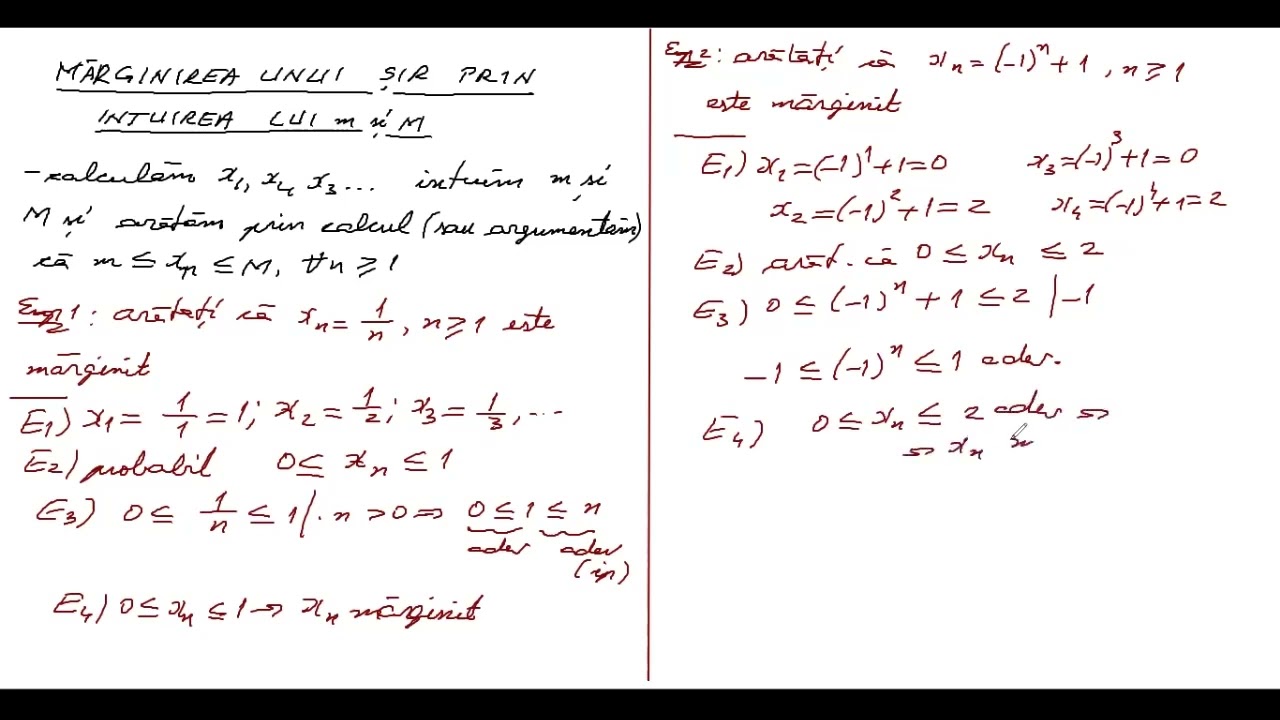 MĂRGINIREA UNUI ȘIR PRIN
INTUIREA LUI m și M
- calculăm x₁, x₂, x₃ ... intuim m și
M și arătăm prin calcul (sau argumentăm)
că m ≤ xₙ ≤ M, ∀n ≥ 1
1: arătați că xₙ = 1/n, n ≥ 1 este
mărginit
E₁) x₁ = 1/1 = 1; x₂ = 1/2; x₃ = 1/3, ...
E₂) probabil 0 ≤ xₙ ≤ 1
E₃) 0 ≤ 1/n ≤ 1 |· n > 0 ⇒ 0 ≤ 1 ≤ n
adev adev
(ip)
E₄) 0 ≤ xₙ ≤ 1 ⇒ xₙ mărginit
2: arătați că xₙ = (-1)ⁿ + 1, n ≥ 1
este mărginit
E₁) x₁ = (-1)¹ + 1 = 0 x₃ = (-1)³ + 1 = 0
x₂ = (-1)² + 1 = 2 x₄ = (-1)⁴ + 1 = 2
E₂) arăt. că 0 ≤ xₙ ≤ 2
E₃) 0 ≤ (-1)ⁿ + 1 ≤ 2 | -1
-1 ≤ (-1)ⁿ ≤ 1 adev.
E₄) 0 ≤ xₙ ≤ 2 adev ⇒
⇒ xₙ